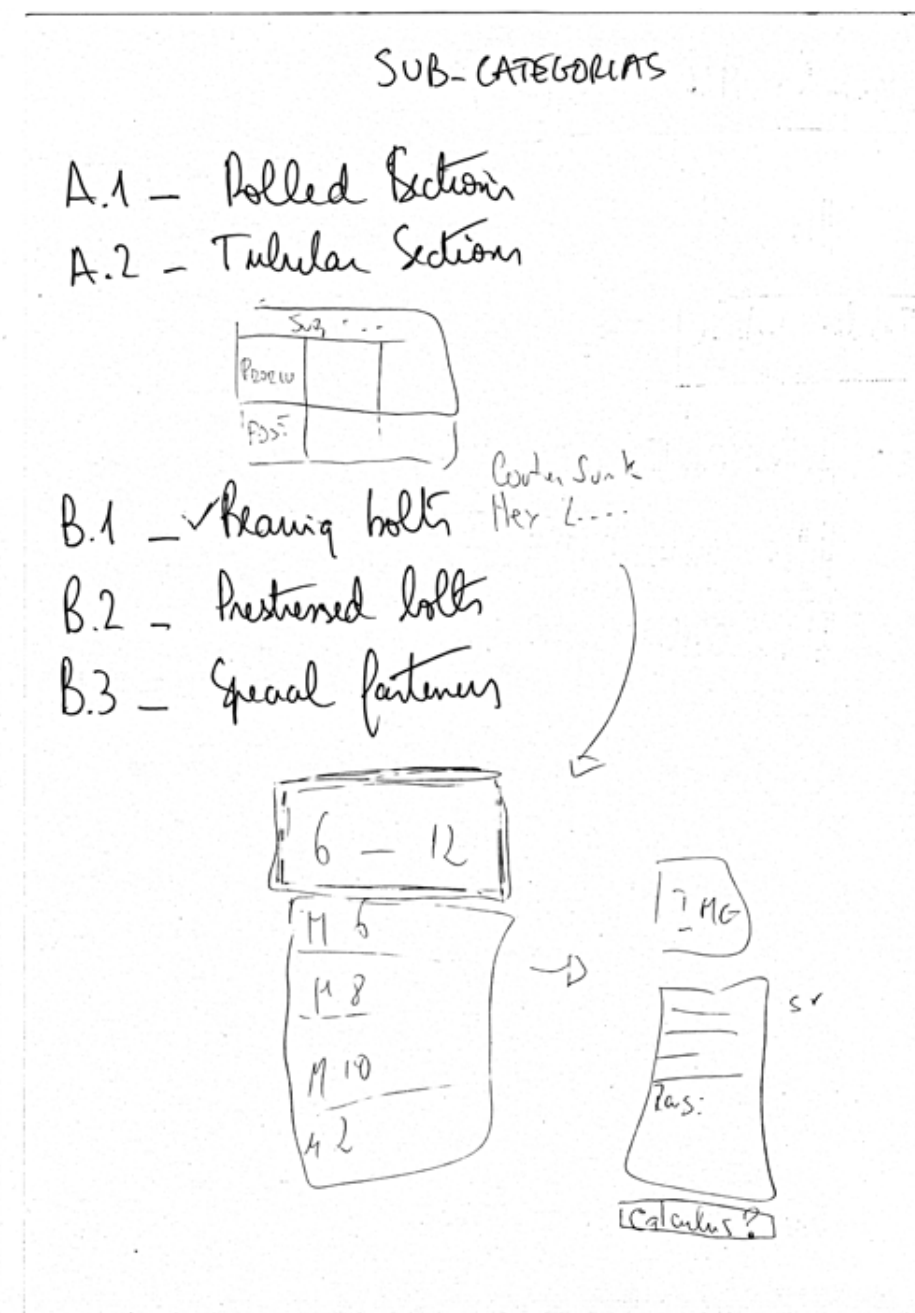 SUB-CATEGORIAS
A.1 - Rolled Sections
A.2 - Tubular Sections
B.1 - ✓Bearing bolts
Hex
B.2 - Prestressed bolts
B.3 - Special fasteners
6 - 12
M 6
M 8
M 10
IMG
Calculus?